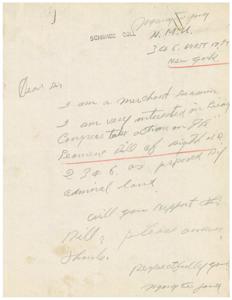 N.M.U.
346 West 17th
New York
Dear Sir
I am a merchant seaman
I am very interested in seeing
Congress take action on the
Seamens Bill of Rights H.R.
2346. as proposed by
admiral Land.
Will you support this
Bill, please answer
Thanks.
Respectfully yours